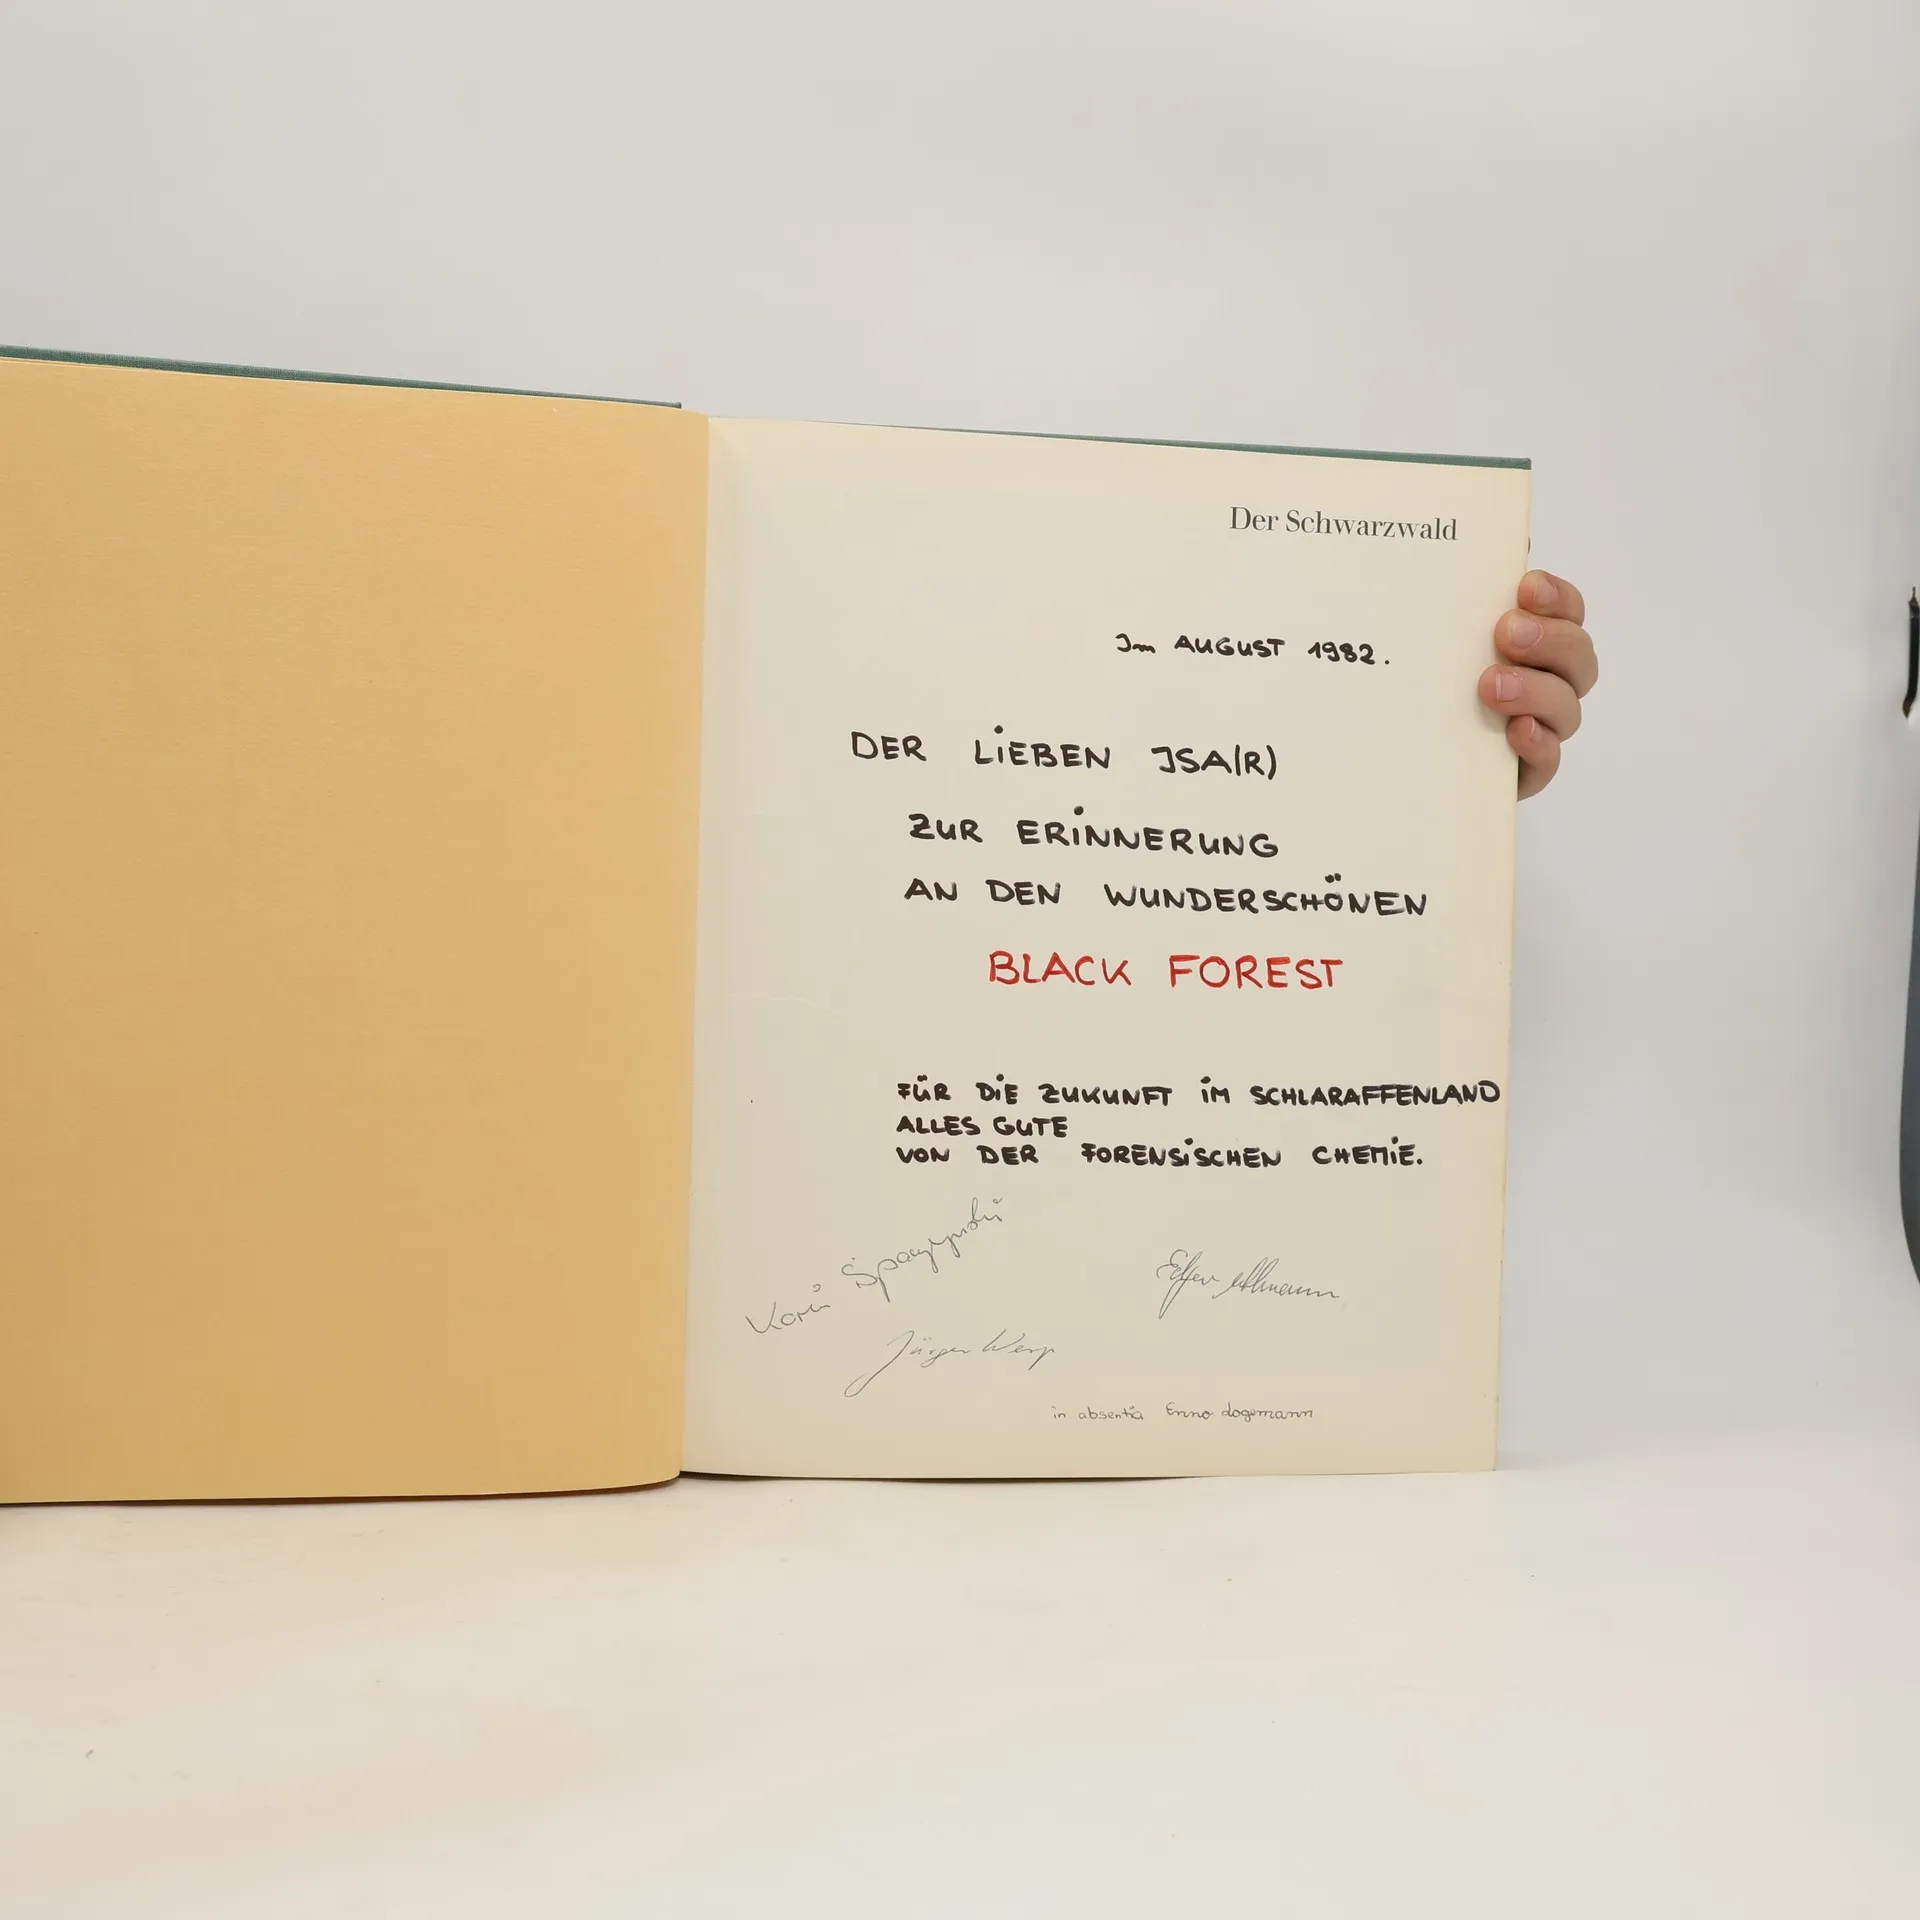 Der Schwarzwald
Im AUGUST 1982.
DER LIEBEN ISA(R)
ZUR ERINNERUNG
AN DEN WUNDERSCHÖNEN
BLACK FOREST
FÜR DIE ZUKUNFT IM SCHLARAFFENLAND
ALLES GUTE
VON DER FORENSISCHEN CHEMIE.
Jürgen
in absentia Enno Logemann